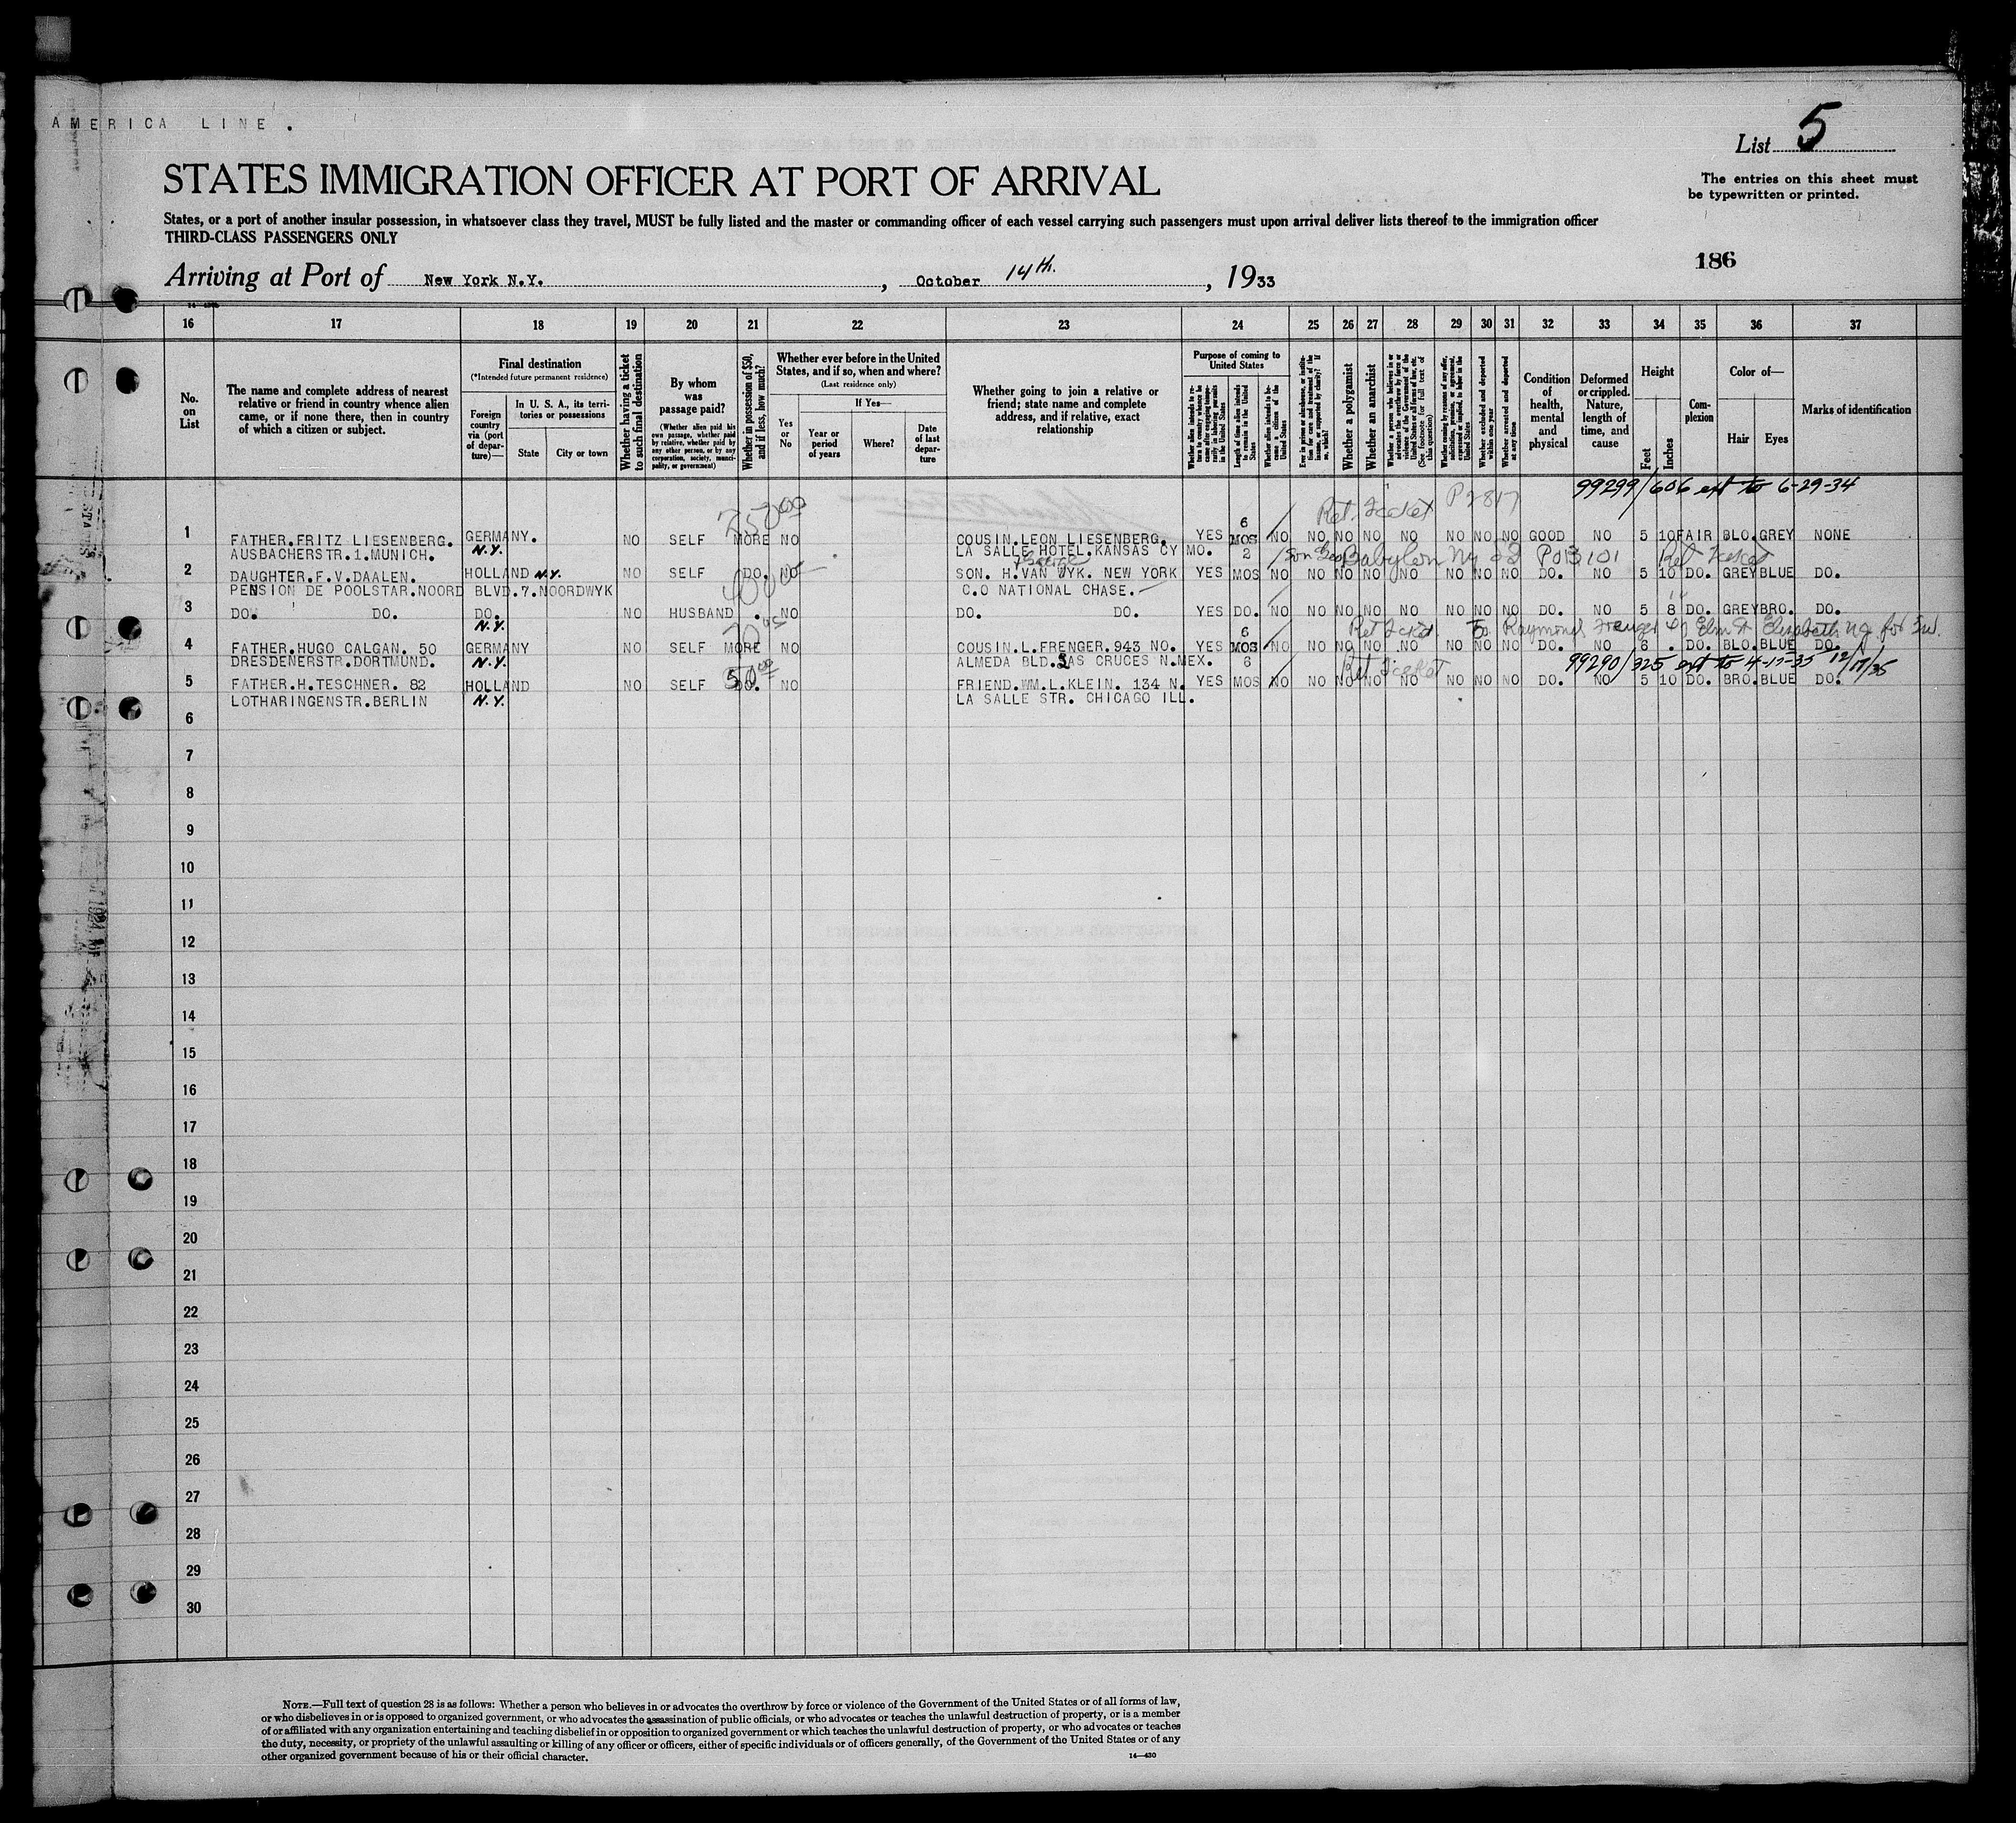 AMERICA LINE.
List 5
STATES IMMIGRATION OFFICER AT PORT OF ARRIVAL
The entries on this sheet must
be typewritten or printed.
States, or a port of another insular possession, in whatsoever class they travel, MUST be fully listed and the master or commanding officer of each vessel carrying such passengers must upon arrival deliver lists thereof to the immigration officer
THIRD-CLASS PASSENGERS ONLY
186
Arriving at Port of New York N.Y., October 14th., 1933
16 17 18 19 20 21 22 23 24 25 26 27 28 29 30 31 32 33 34 35 36 37
No. on List
The name and complete address of nearest relative or friend in country whence alien came, or if none there, then in country of which a citizen or subject.
Final destination
(*Intended future permanent residence)
Foreign country via (port of departure)—
In U. S. A., its territories or possessions
State
City or town
Whether having a ticket to such final destination
By whom was passage paid?
(Whether alien paid his own passage, whether paid by relative, whether paid by any other person, or by any corporation, society, municipality, or government)
Whether in possession of $50, and if less, how much?
Whether ever before in the United States, and if so, when and where?
(Last residence only)
Yes or No
If Yes—
Year or period of years
Where?
Date of last departure
Whether going to join a relative or friend; state name and complete address, and if relative, exact relationship
Purpose of coming to United States
Whether alien intends to return to country whence he came after engaging temporarily in laboring pursuits in the United States
Length of time alien intends to remain in the United States
Whether alien intends to become a citizen of the United States
Ever in prison or almshouse, or institution for care and treatment of the insane, or supported by charity? If so, which?
Whether a polygamist
Whether an anarchist
Whether a person who believes in or advocates the overthrow by force or violence of the Government of the United States or all forms of law, etc. (See footnote for full text of this question)
Whether coming by reason of any offer, solicitation, promise, or agreement, expressed or implied, to labor in the United States
Whether excluded and deported within one year
Whether arrested and deported at any time
Condition of health, mental and physical
Deformed or crippled. Nature, length of time, and cause
Height
Feet
Inches
Complexion
Color of—
Hair
Eyes
Marks of identification
99299/606 ext to 6-29-34
250.00 Ret. Ticket P2817
1 FATHER.FRITZ LIESENBERG. GERMANY. NO SELF MORE NO COUSIN.LEON LIESENBERG. YES 6 MOS NO NO NO NO NO NO NO NO GOOD NO 5 10 FAIR BLO. GREY NONE
AUSBACHERSTR.1.MUNICH. N.Y. LA SALLE HOTEL.KANSAS CY MO.
Babylon NY Ret Ticket
2 DAUGHTER.F.V.DAALEN. HOLLAND N.Y. NO SELF DO. NO SON. H.VAN WYK. NEW YORK YES 2 MOS NO NO NO NO NO NO NO NO DO. NO 5 10 DO. GREY BLUE DO.
PENSION DE POOLSTAR.NOORD BLVD.7.NOORDWYK C.O NATIONAL CHASE.
3 DO. DO. DO. NO HUSBAND . NO DO. DO. YES DO. NO NO NO NO NO NO NO NO DO. NO 5 8 DO. GREY BRO. DO.
N.Y. Ret Ticket To Raymond Frenger Elm St Elizabeth NJ for
4 FATHER.HUGO CALGAN. 50 GERMANY NO SELF MORE NO COUSIN.L.FRENGER.943 NO. YES 6 MOS NO NO NO NO NO NO NO NO DO. NO 6 . DO. BLO. BLUE DO.
DRESDENERSTR.DORTMUND. N.Y. ALMEDA BLD.LAS CRUCES N.MEX.
99290/325 ext to 4-13-35 12/17/35
50.00 Ret Ticket
5 FATHER.H.TESCHNER. 82 HOLLAND NO SELF DO. NO FRIEND.WM.L.KLEIN. 134 N. YES 6 MOS NO NO NO NO NO NO NO NO DO. NO 5 10 DO. BRO. BLUE DO.
LOTHARINGENSTR.BERLIN N.Y. LA SALLE STR. CHICAGO ILL.
6
7
8
9
10
11
12
13
14
15
16
17
18
19
20
21
22
23
24
25
26
27
28
29
30
NOTE.—Full text of question 28 is as follows: Whether a person who believes in or advocates the overthrow by force or violence of the Government of the United States or of all forms of law,
or who disbelieves in or is opposed to organized government, or who advocates the assassination of public officials, or who advocates or teaches the unlawful destruction of property, or is a member
of or affiliated with any organization entertaining and teaching disbelief in or opposition to organized government or which teaches the unlawful destruction of property, or who advocates or teaches
the duty, necessity, or propriety of the unlawful assaulting or killing of any officer or officers, either of specific individuals or of officers generally, of the Government of the United States or of any
other organized government because of his or their official character.
14—430